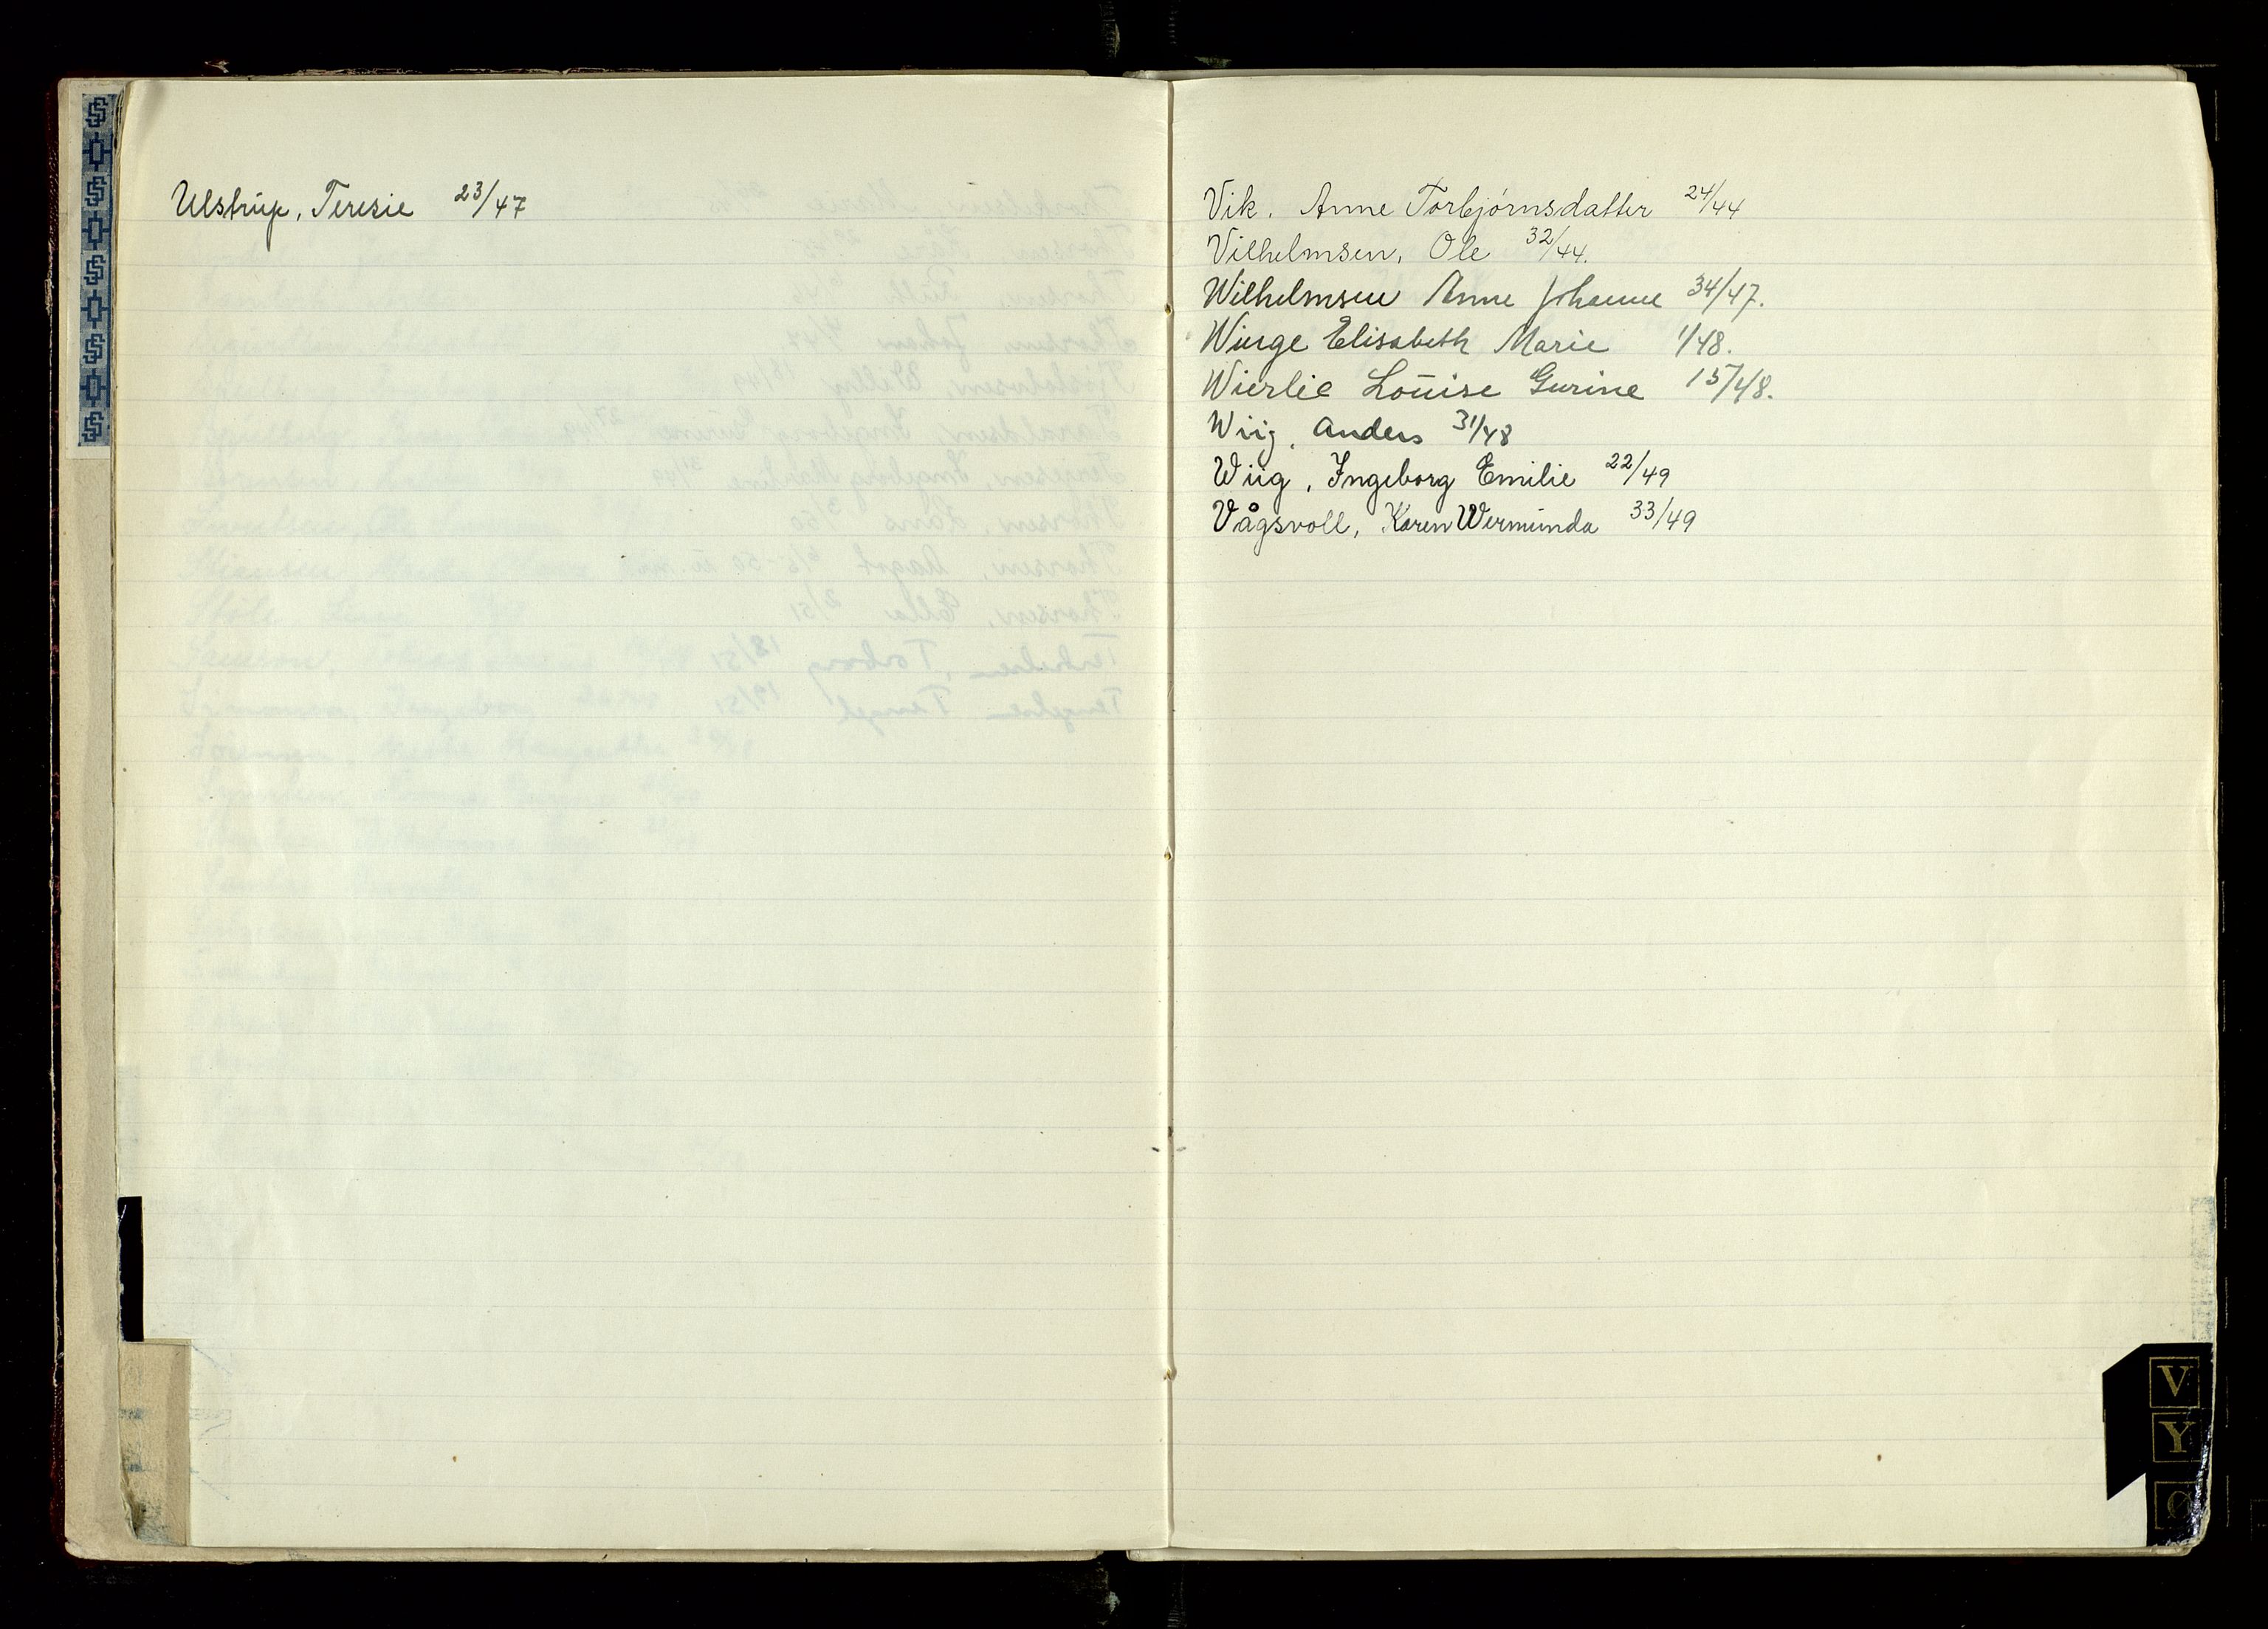 Ulstrup, Teresie 23/47
Vik. Anne Torbjørnsdatter 24/44
Vilhelmsen, Ole 32/44.
Wilhelmsen Anne Johanne 34/47.
Winge Elisabeth Marie 1/48.
Wierlie Louise Gurine 15/48.
Wiig, Anders 31/48
Wiig, Ingeborg Emilie 22/49
Vågsvoll, Karen Wermunda 33/49
V
Y